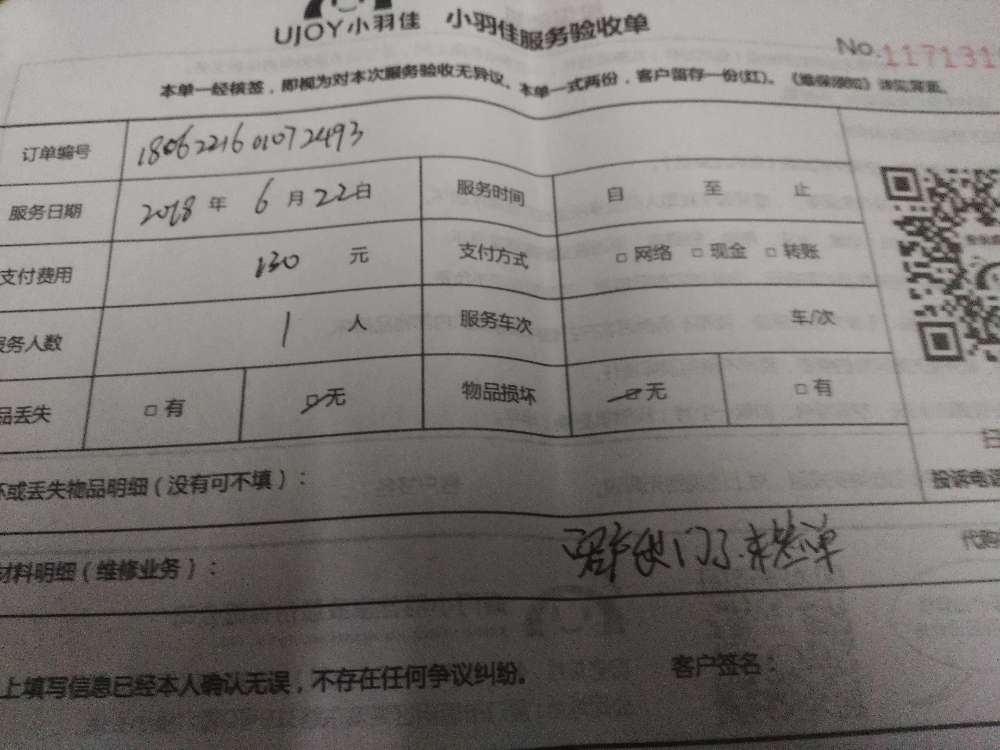 UJOY小羽佳 小羽佳服务验收单
No.117131
本单一经核签，即视为对本次服务验收无异议。本单一式两份，客户留存一份(红)。《维保须知》详见背面。
订单编号 1806221601072493
服务日期 2018 年 6 月 22 日 服务时间 自 至 止
支付费用 130 元 支付方式 □ 网络 □ 现金 □ 转账
服务人数 1 人 服务车次 车/次
品丢失 □ 有 □ 无 物品损坏 □ 无 □ 有
坏或丢失物品明细（没有可不填）：
投诉电话
材料明细（维修业务）： 客户出门了.未签单
代购
上填写信息已经本人确认无误，不存在任何争议纠纷。 客户签名：